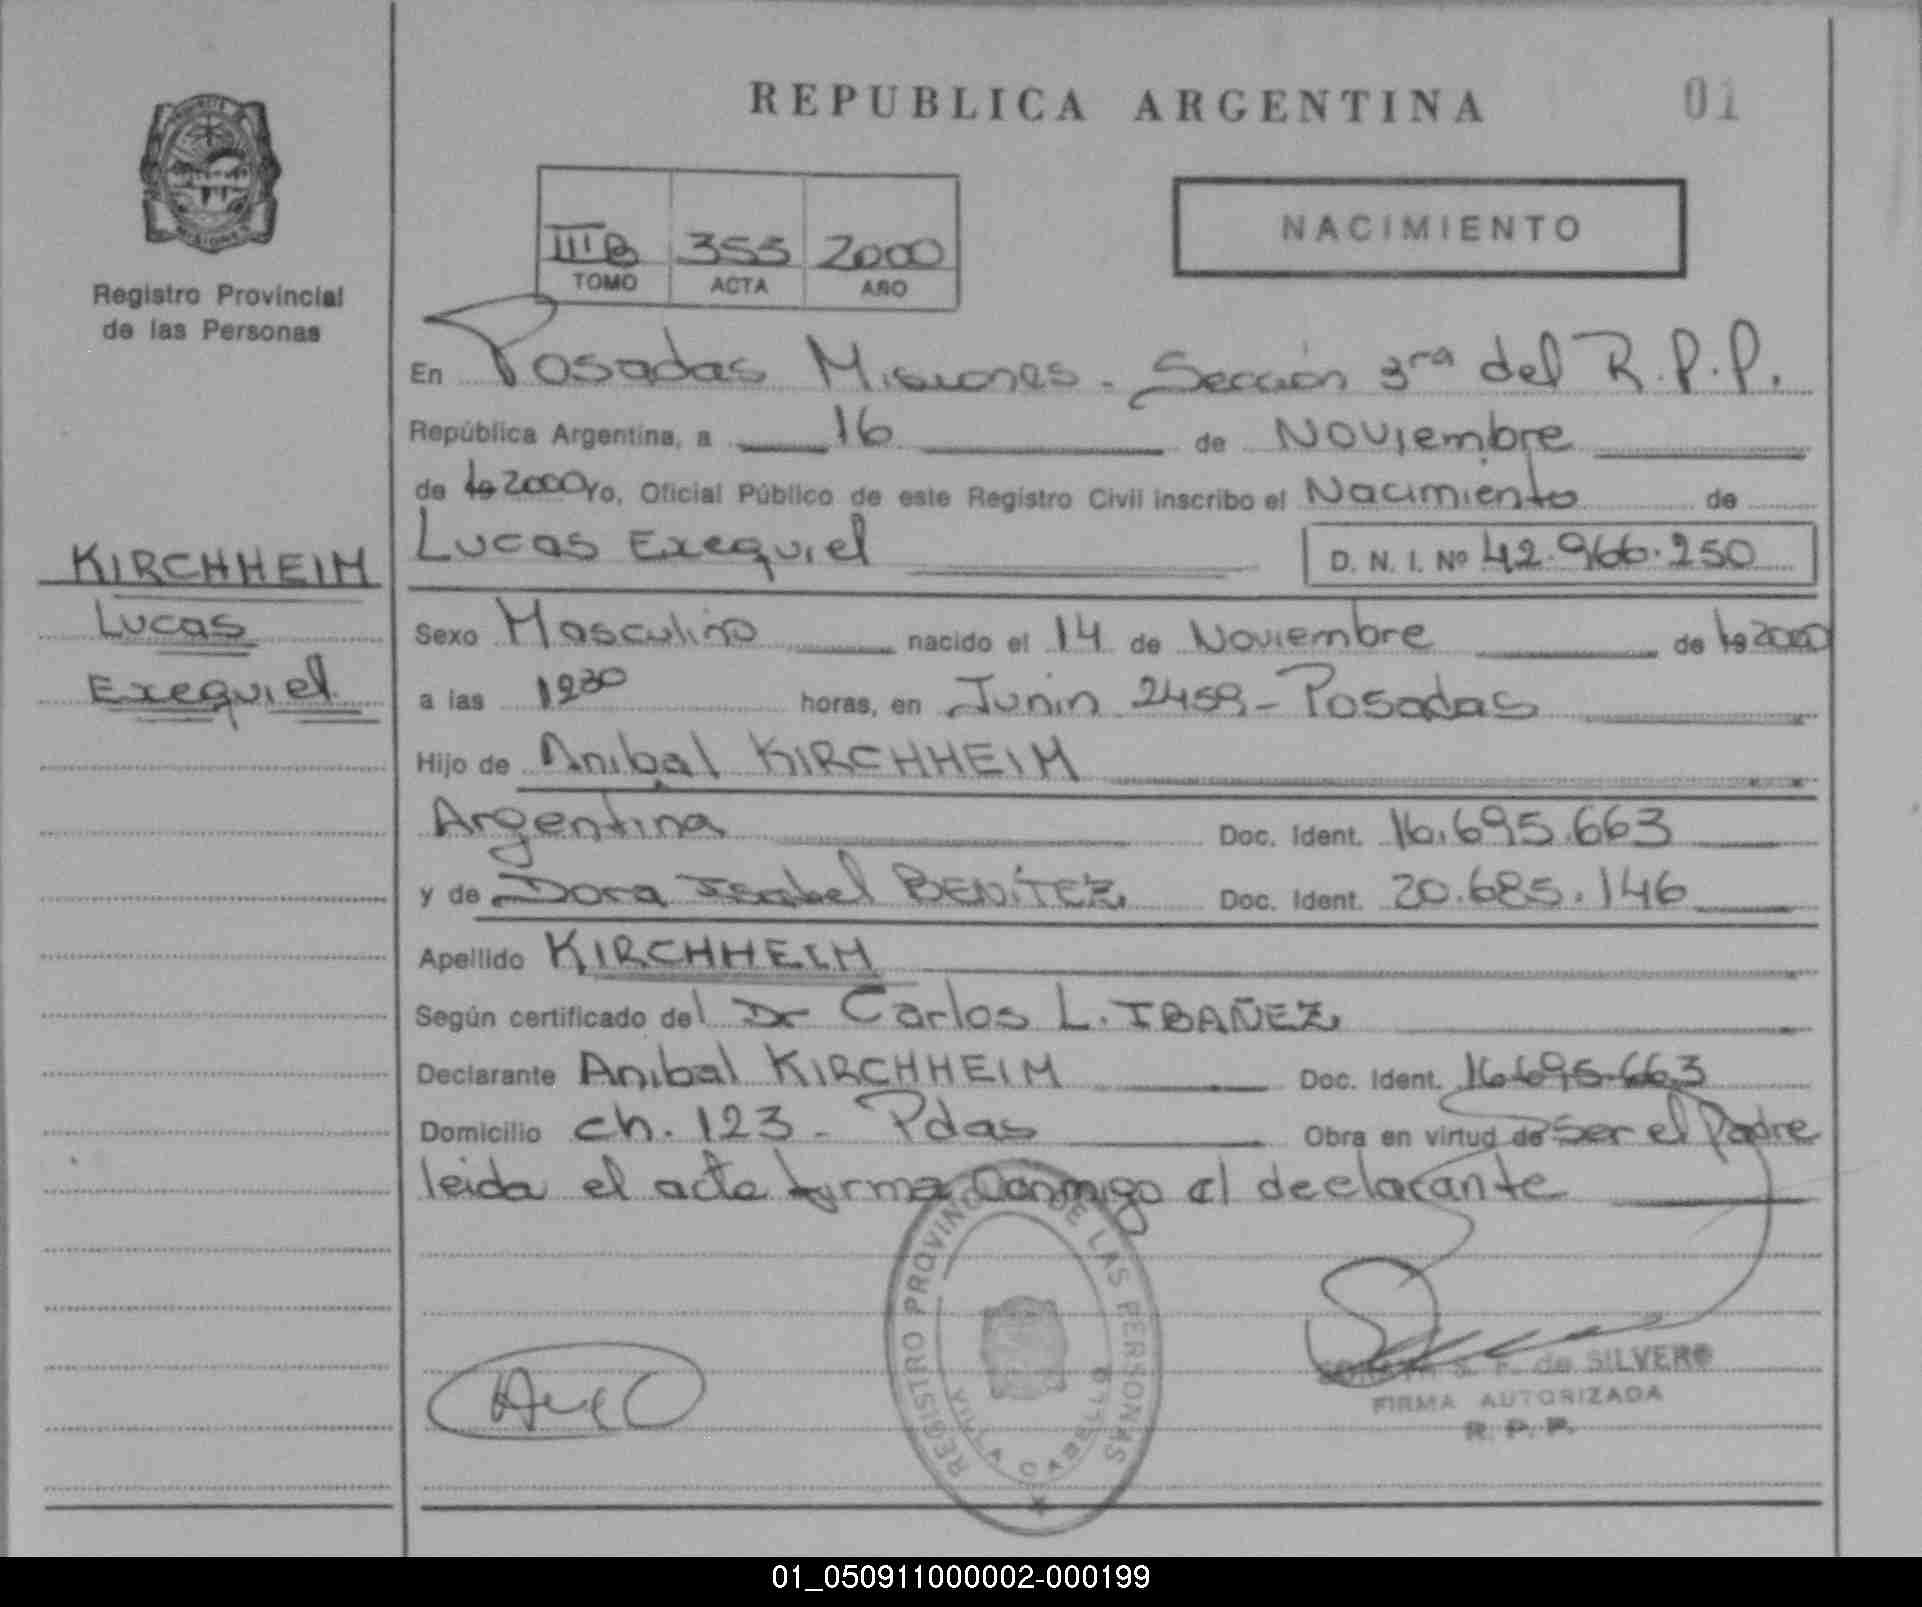 REPUBLICA ARGENTINA
01
Registro Provincial
de las Personas
III B 355 2000
TOMO ACTA AÑO
NACIMIENTO
En Posadas Misiones - Sección 3ra del R.P.P.
República Argentina, a 16 de Noviembre
de 19 2000 Yo, Oficial Público de este Registro Civil inscribo el Nacimiento de
Lucas Exequiel D. N. I. Nº 42.966.250
KIRCHHEIM
Lucas
Exequiel
Sexo Masculino nacido el 14 de Noviembre de 19 2000
a las 1230 horas, en Junin 2459 - Posadas
Hijo de Anibal KIRCHHEIM
Argentina Doc. Ident. 16.695.663
y de Dora Isabel BENíTEZ Doc. Ident. 20.685.146
Apellido KIRCHHEIM
Según certificado del Dr Carlos L. IBAÑEZ
Declarante Anibal KIRCHHEIM Doc. Ident. 16.695.663
Domicilio ch. 123 - Pdas Obra en virtud de ser el Padre
leida el acta firma Conmigo el declarante
REGISTRO PROVINCIAL DE LAS PERSONAS
VILLA CABELLO
S. F. de SILVERO
FIRMA AUTORIZADA
R. P. P.
01_050911000002-000199